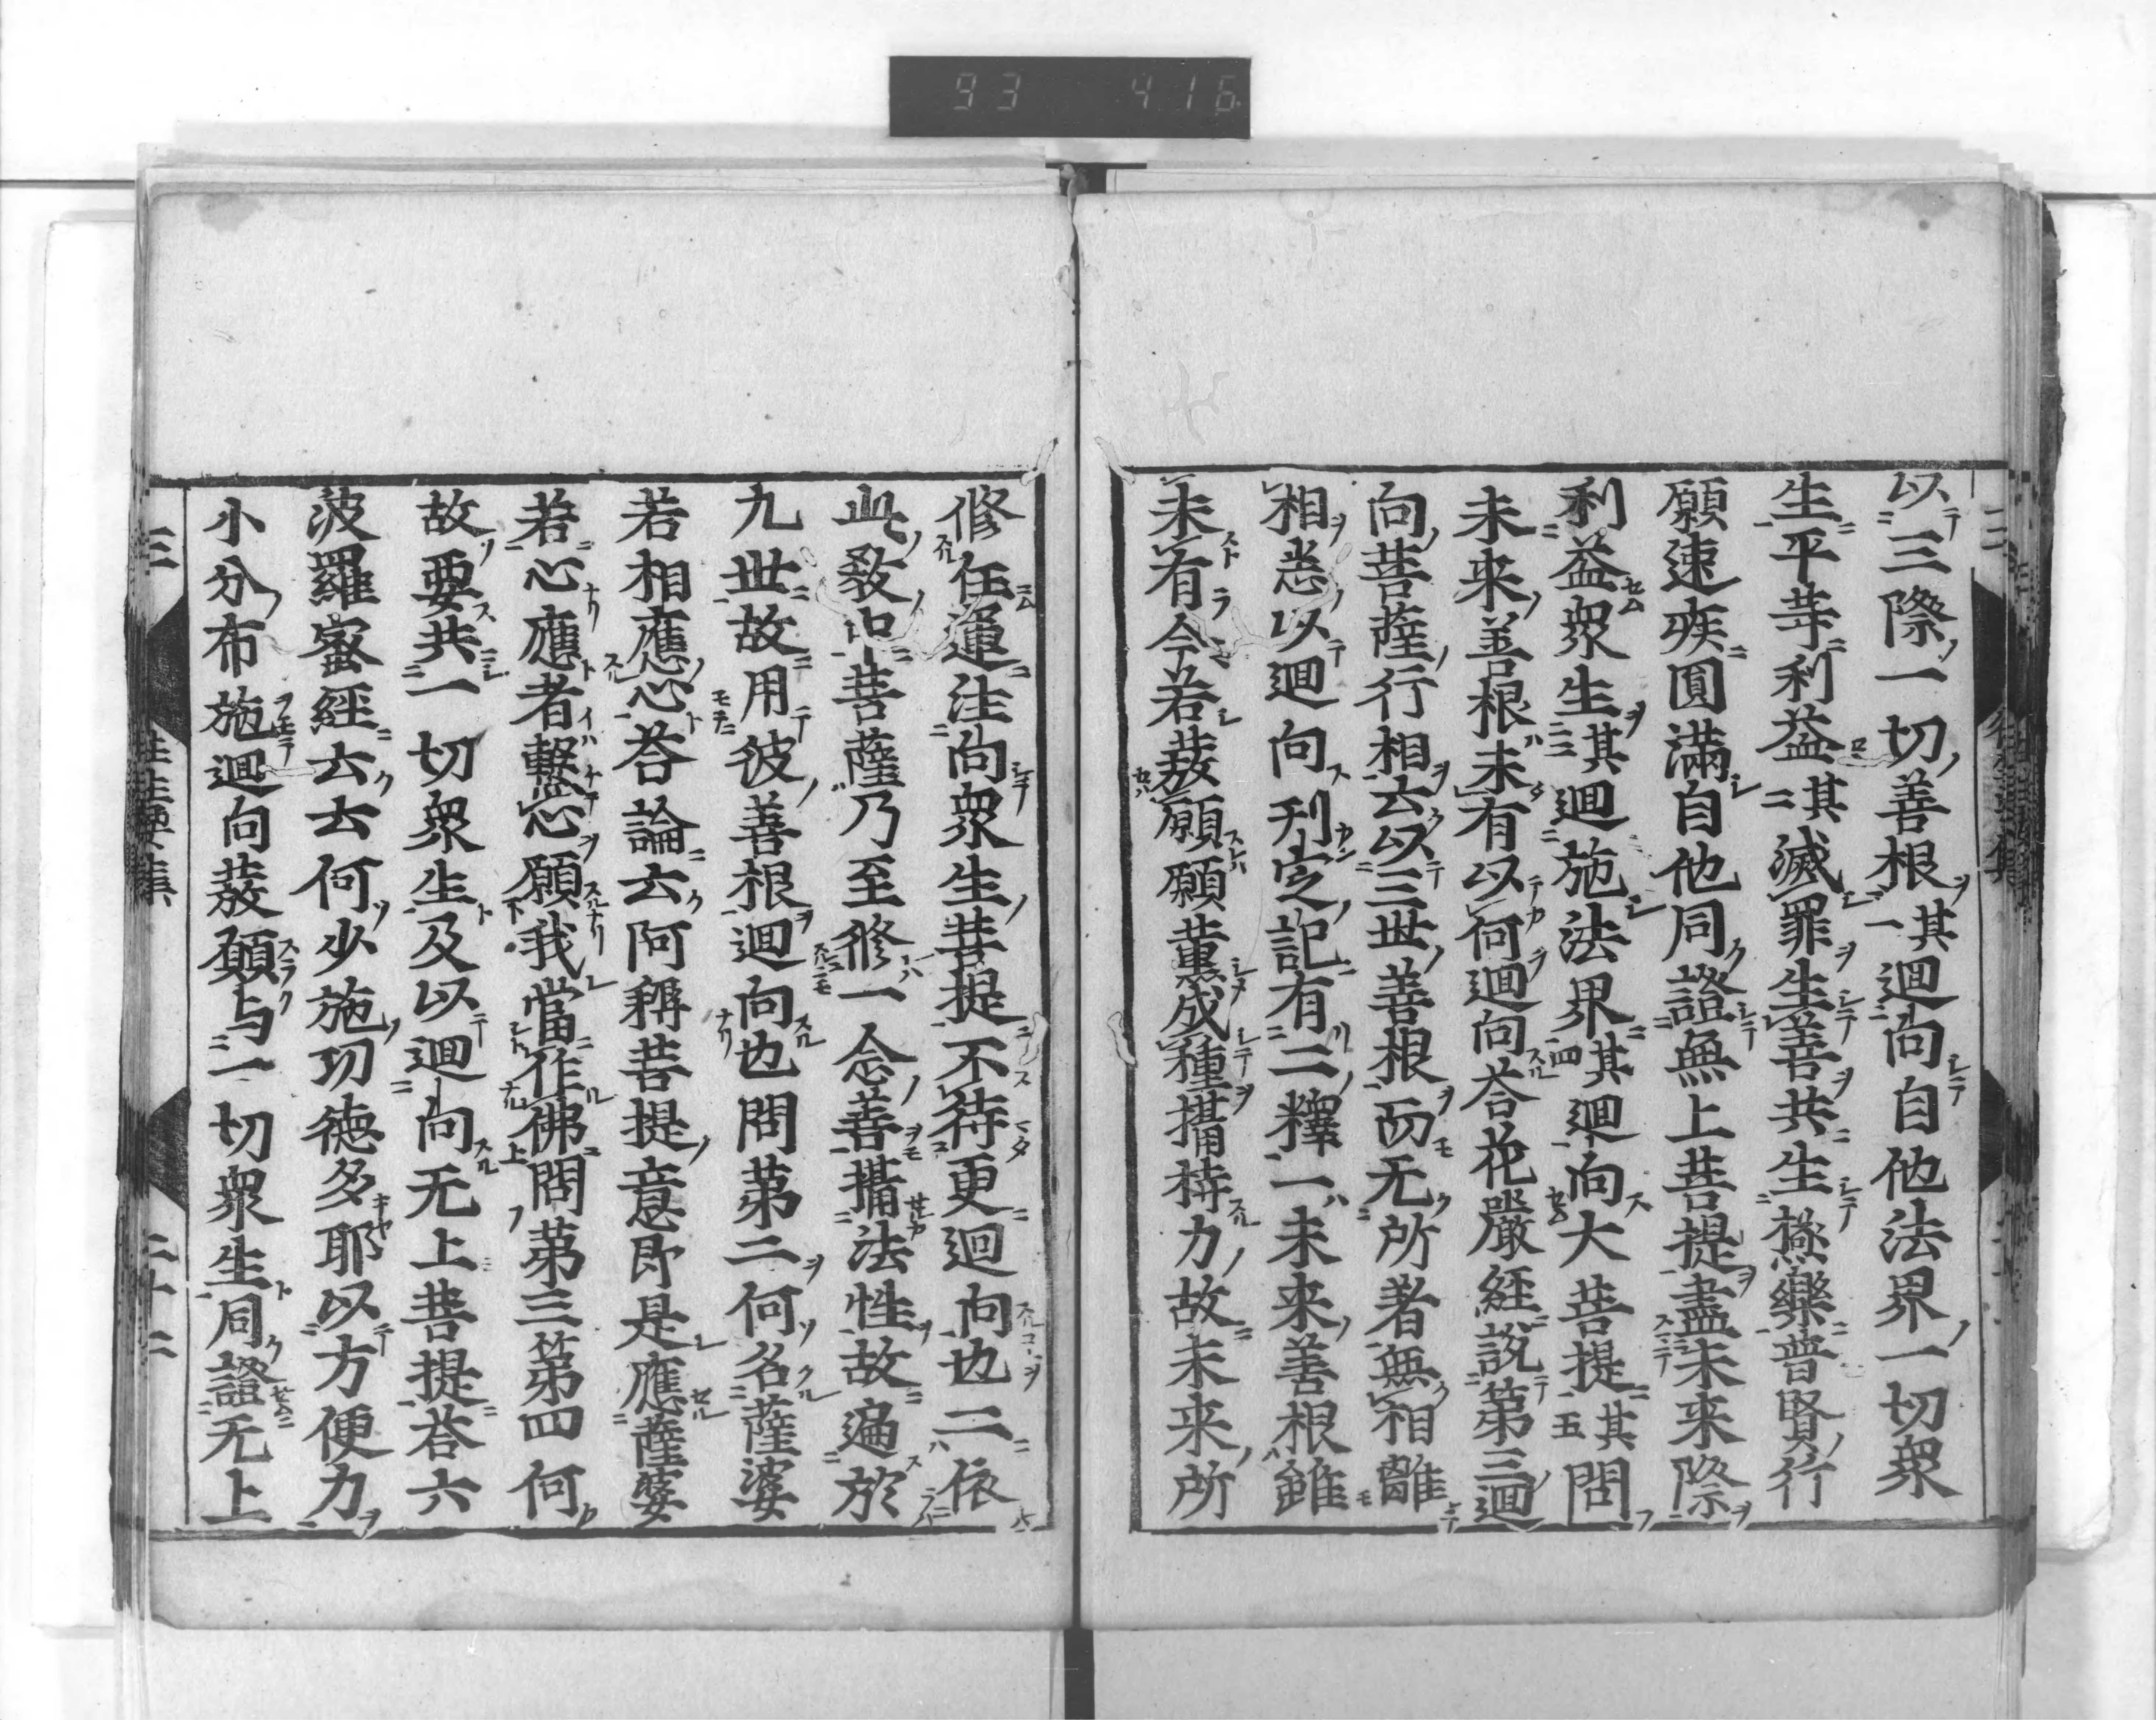 93 416
以三際一切善根其一廻向自他法界一切衆
生平等利益其二滅罪生善共生極樂普賢行
願速疾圓滿自他同證無上菩提盡未来際
利益衆生其三廻施法界其四廻向大菩提其五問
未来善根未有以何廻向荅花嚴経説第三廻
向菩薩行相云以三世善根而无所著無相離
相悉以廻向刊定記有二釋一未来善根雖
未有今若發願願薫成種攝持力故未来所
修任運注向衆生菩提不待更迴向也二依
此敎中菩薩乃至修一念善攝法性故遍於
九世故用彼善根廻向也問第二何名薩婆
若相應心荅論云阿耨菩提意即是應薩婆
若心應者繫心願我當作佛問第三第四何
故要共一切衆生及以廻向无上菩提荅六
波羅蜜経云云何少施功德多耶以方便力
小分布施廻向發願与一切衆生同證无上